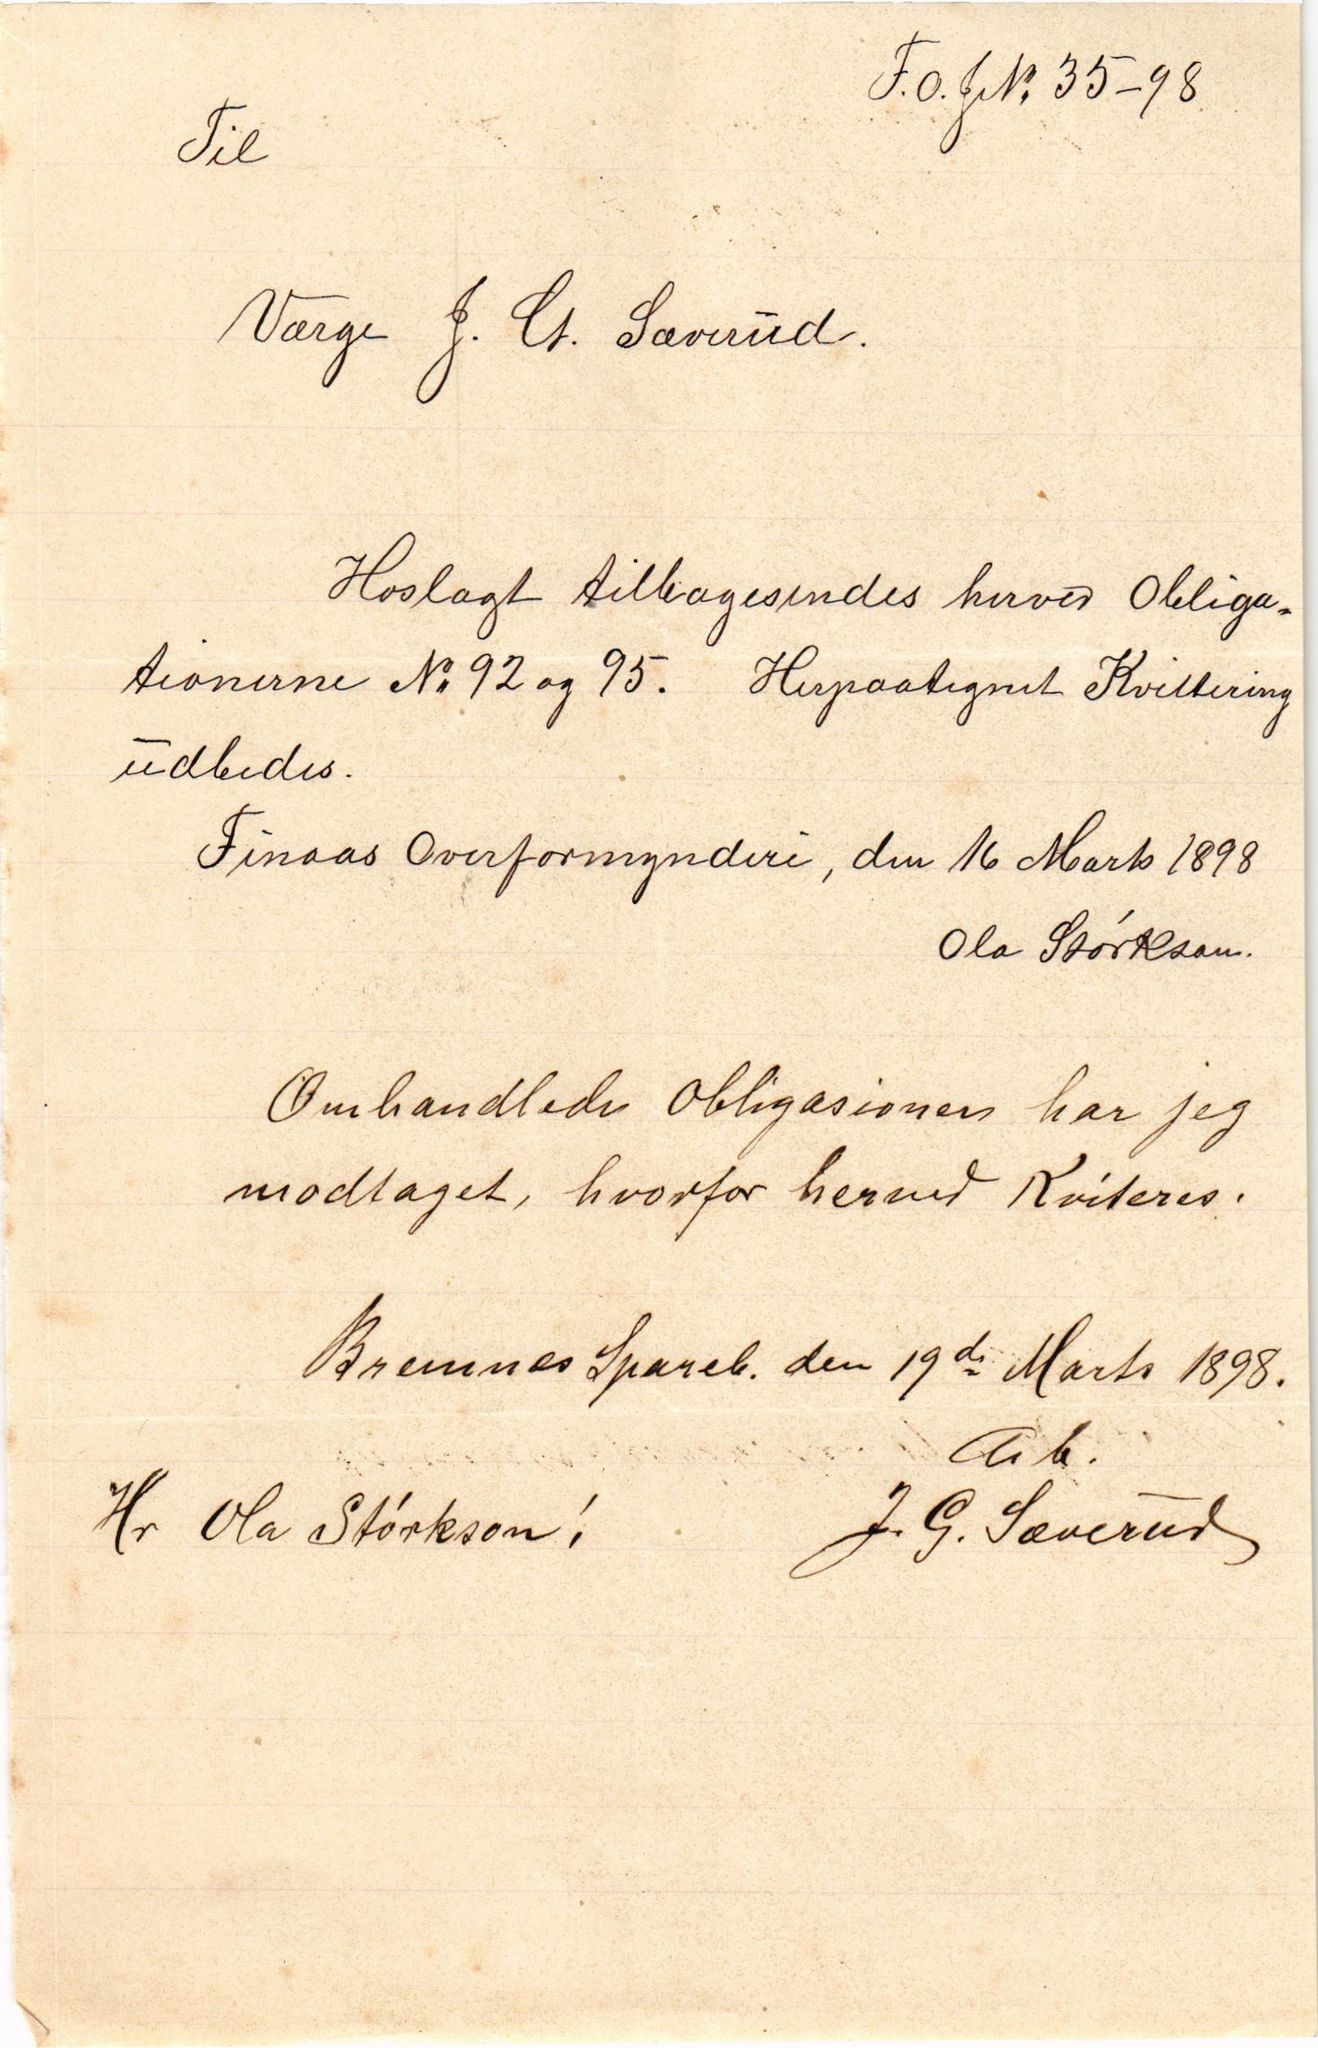 F.O.J.No. 35-98
Til
Værge J. G. Sæverud.
Hoslagt tilbagesendes herved Obliga-
tionerne No. 92 og 95. Herpaategnet Kvittering
udbedes.
Finaas Overformynderi, den 16 Marts 1898
Ola Størkson.
Omhandlede Obligasioner har jeg
modtaget, hvorfor herved Kviteres.
Bremnes Spareb. den 19de Marts 1898.
Arb.
J. G. Sæverud
Hr Ola Størkson!